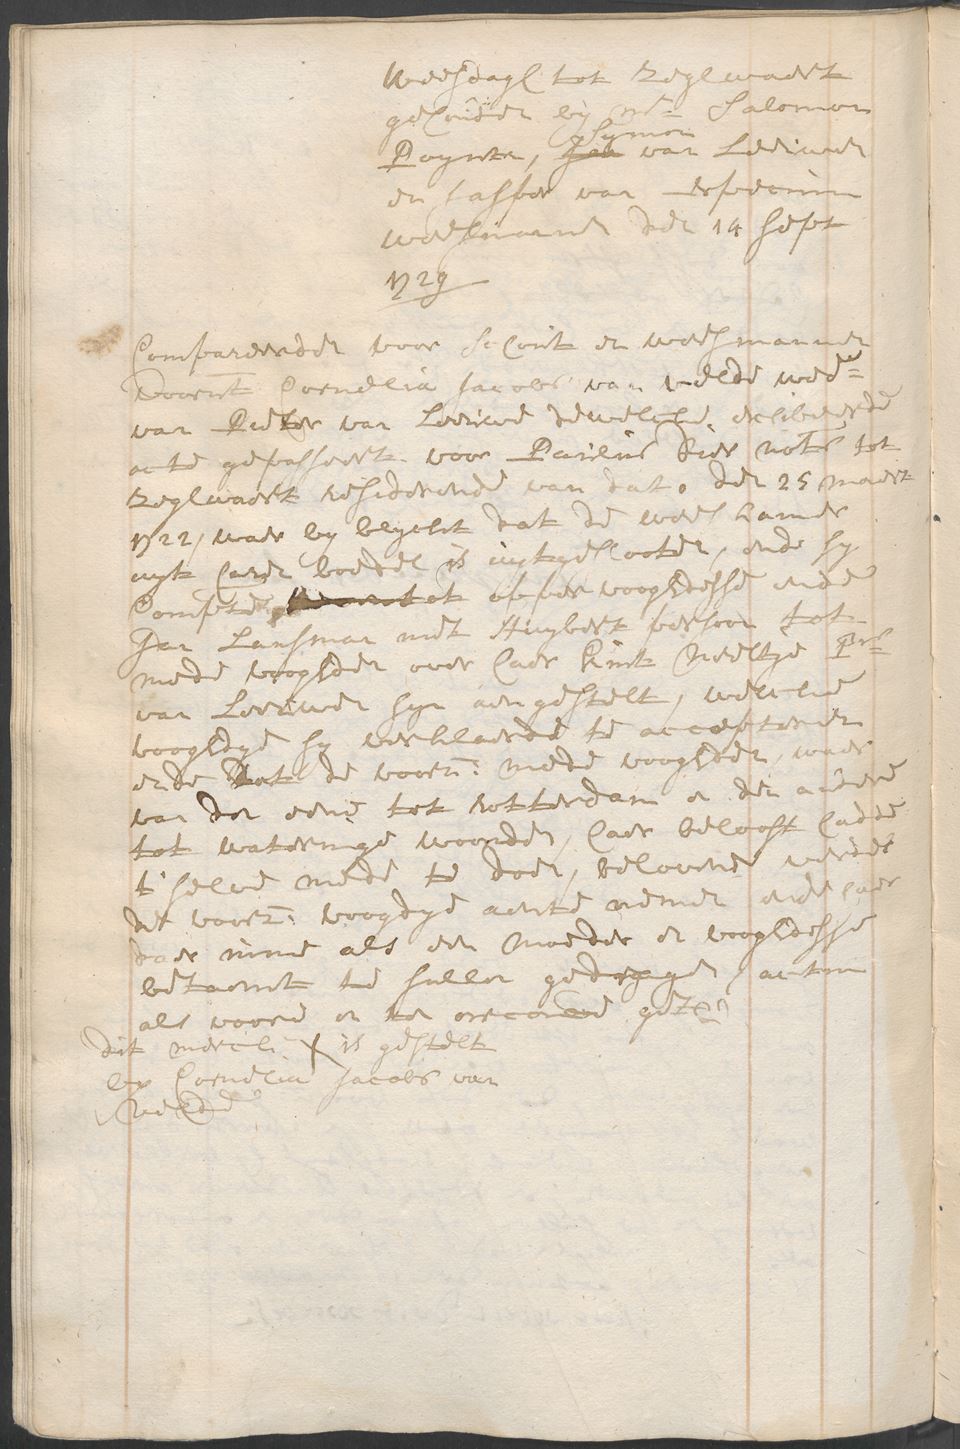 Weesdagh tot Zegwaert
gehouden by mr. Salomon
Poynter, Symon van Leeuwen
en Jasper van
weesmannen den 14 Sept
1729
Compareerden voor Schout en weesmannen
voornt Cornelia Jacobs van velde wede
van Pieter van Leeuwe dewelcke exibeerde
acte gepasseert voor Paulus nots tot
Zegwaert residerende van dato den 25 maert
1722, waer by blyckt dat de weeskamer
uyt haer boedel is uytgeslooten, ende sy
Compte tot oppervooghdesse ende
Jan Lansman met Huybert persoon tot
mede vooghden over haer kint Neeltje Prs
van Leeuwen syn aengestelt, welcke
vooghdye sy verklaerde te accepteren
ende dat de voorn: mede vooghden, waer
van den eene tot rotterdam en den andere
tot wateringe woonden, haer belooft hadde
t' selve mede te doen, belovende werdes
de voorn: vooghdye aente nemen ende haer
daer inne als een moeder en vooghdesse
betaemt te sullen gedragen, actum
als voore en ten oirconde get:
dit merck X is gestelt
by Cornelia Jacobs van
velde